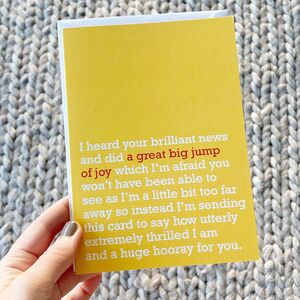 I heard your brilliant news
and did a great big jump
of joy which I'm afraid you
won't have been able to
see as I'm a little bit too far
away so instead I'm sending
this card to say how utterly
extremely thrilled I am
and a huge hooray for you.